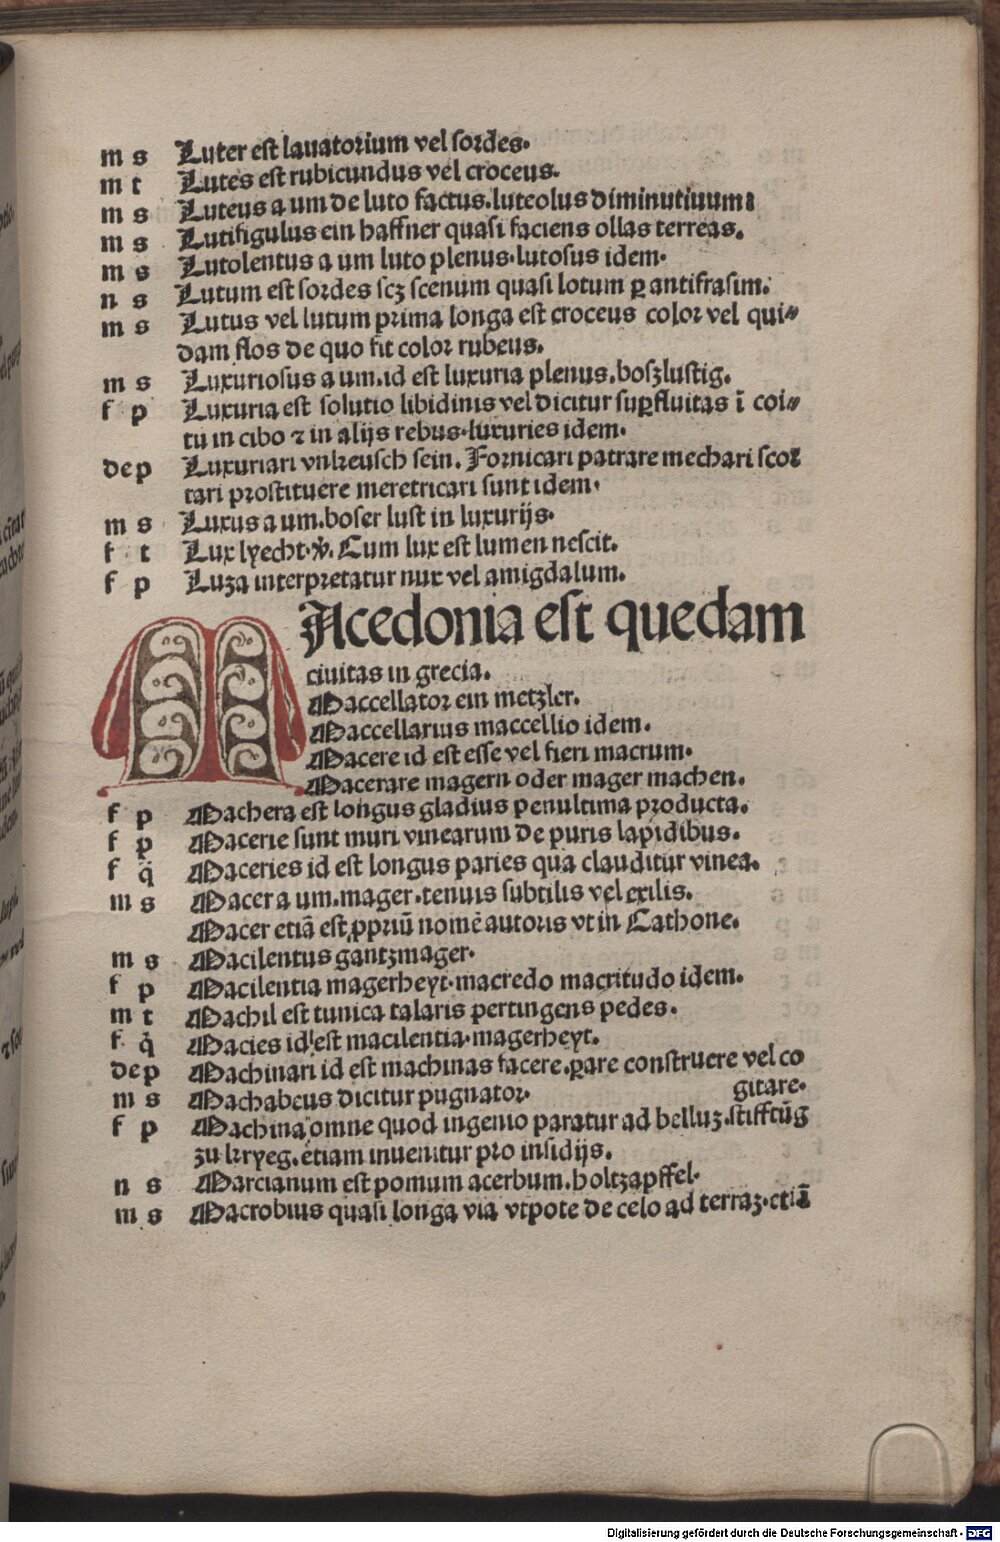 m s Luter est lauatorium vel sordes.
m t Lutes est rubicundus vel croceus.
m s Luteus a um de luto factus.luteolus diminutiuum:
m s Lutifigulus ein haffner quasi faciens ollas terreas.
m s Lutolentus a um luto plenus.lutosus idem.
n s Lutum est sordes scꝫ scenum quasi lotum ꝑ antifrasim.
m s Lutus vel lutum prima longa est croceus color vel qui⸗
dam flos de quo fit color rubeus.
m s Luxuriosus a um.id est luxuria plenus.boszlustig.
f p Luxuria est solutio libidinis vel dicitur suꝑfluitas ī coi⸗
tu in cibo ⁊ in alijs rebus.luxuries idem.
de p Luxuriari vnkeusch sein. Fornicari patrare mechari scor
tari prostituere meretricari sunt idem.
m s Luxus a um.boser lust in luxurijs.
f t Lux lyecht.ꝟ. Cum lux est lumen nescit.
f p Luza interpretatur nux vel amigdalum.
MAcedonia est quedam
ciuitas in grecia.
Maccellator ein metzler.
Maccellarius maccellio idem.
Macere id est esse vel fieri macrum.
Macerare magern oder mager machen.
f p Machera est longus gladius penultima producta.
f p Macerie sunt muri vinearum de puris lapidibus.
f q̈ Maceries id est longus paries qua clauditur vinea.
m s Macer a um.mager.tenuis subtilis vel exilis.
Macer etiā est ꝓpriū nomē autoris vt in Cathone.
m s Macilentus gantzmager.
f p Macilentia magerheyt.macredo macritudo idem.
m t Machil est tunica talaris pertingens pedes.
f q̈ Macies id est macilentia.magerheyt.
de p Machinari id est machinas facere.ꝑare construere vel co
m s Machabeus dicitur pugnator. gitare.
f p Machina omne quod ingenio paratur ad belluꝫ.stifftūg
zu kryeg.etiam inuenitur pro insidijs.
n s Marcianum est pomum acerbum.holtzapffel.
m s Macrobius quasi longa via vtpote de celo ad terraꝫ.etiā
Digitalisierung gefördert durch die Deutsche Forschungsgemeinschaft - DFG